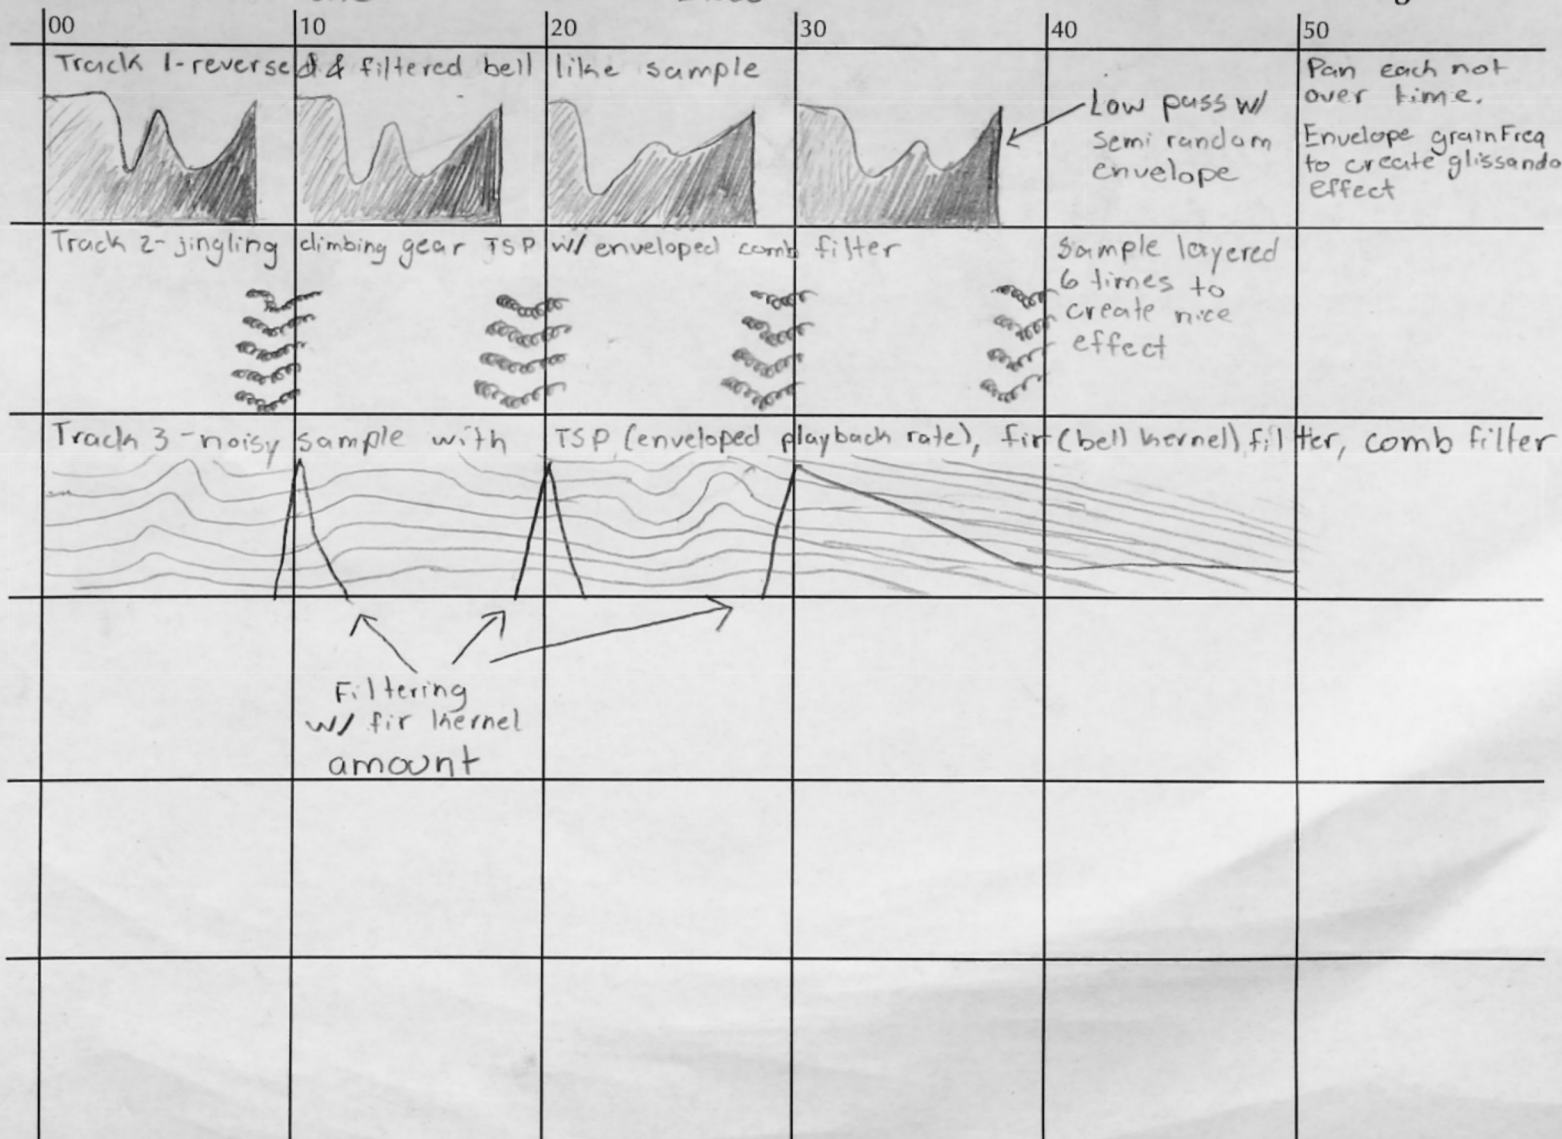 00 10 20 30 40 50
Track 1-reversed & filtered bell like sample
Low pass w/
semi random
envelope
Pan each not
over time.
Envelope grainFreq
to create glissando
effect
Track 2- jingling climbing gear TSP w/ enveloped comb filter
Sample layered
6 times to
create nice
effect
Track 3-noisy sample with TSP (enveloped playback rate), fir (bell kernel) filter, comb filter
Filtering
w/ fir kernel
amount